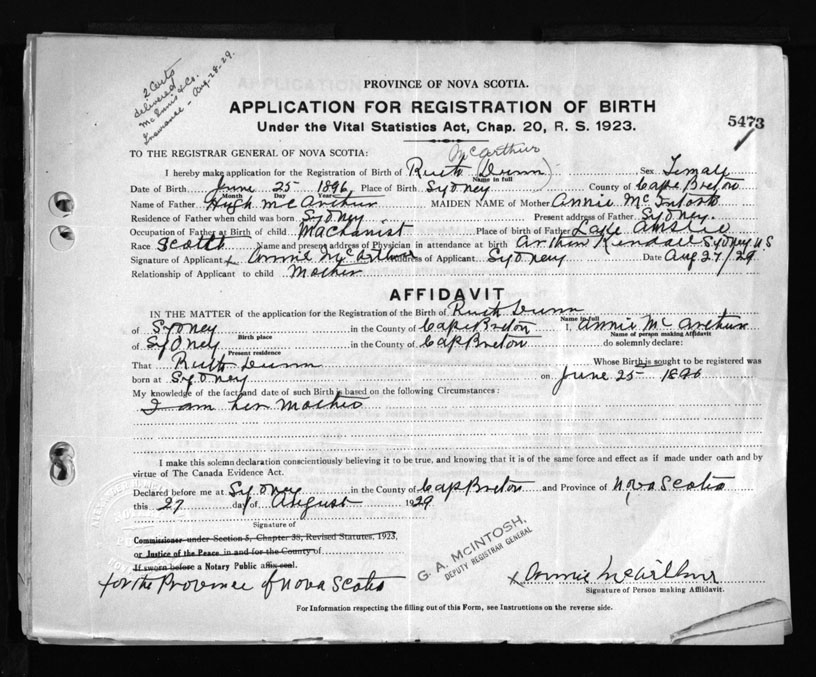 2 Certs
delivered
Mc Innis & Co.
Insurance - Aug-28-29.
PROVINCE OF NOVA SCOTIA.
APPLICATION FOR REGISTRATION OF BIRTH
Under the Vital Statistics Act, Chap. 20, R. S. 1923.
5473
TO THE REGISTRAR GENERAL OF NOVA SCOTIA:
McArthur
I hereby make application for the Registration of Birth of Ruth (Dunn) Sex Female
Name in full
Date of Birth June 25 1896 Place of Birth Sydney County of Cape Breton
Month Day Year
Name of Father Hugh McArthur MAIDEN NAME of Mother Annie McIntosh
Residence of Father when child was born Sydney Present address of Father Sydney.
Occupation of Father at Birth of child Machanist Place of birth of Father Lake Ainslie
Race Scotch Name and present address of Physician in attendance at birth Arthur Kendall Sydney NS
Signature of Applicant x Annie McArthur Address of Applicant Sydney Date Aug 27/29
Relationship of Applicant to child Mother
AFFIDAVIT
IN THE MATTER of the application for the Registration of the Birth of Ruth Dunn
Name in full
of Sydney in the County of Cape Breton I, Annie McArthur
Birth place Name of person making Affidavit
of Sydney in the County of Cap Breton do solemnly declare:
Present residence
That Ruth Dunn Whose Birth is sought to be registered was
born at Sydney on June 25 1896
My knowledge of the fact and date of such Birth is based on the following Circumstances:
I am her Mother
I make this solemn declaration conscientiously believing it to be true, and knowing that it is of the same force and effect as if made under oath and by
virtue of The Canada Evidence Act.
Declared before me at Sydney in the County of Cap Breton and Province of Nova Scotia
this 27 day of August 1929
Signature of
Commissioner under Section 5, Chapter 38, Revised Statutes, 1923,
or Justice of the Peace in and for the County of
If sworn before a Notary Public affix seal.
for the Province of Nova Scotia
G. A. McINTOSH,
DEPUTY REGISTRAR GENERAL
x Annie McArthur
Signature of Person making Affidavit.
For Information respecting the filling out of this Form, see Instructions on the reverse side.